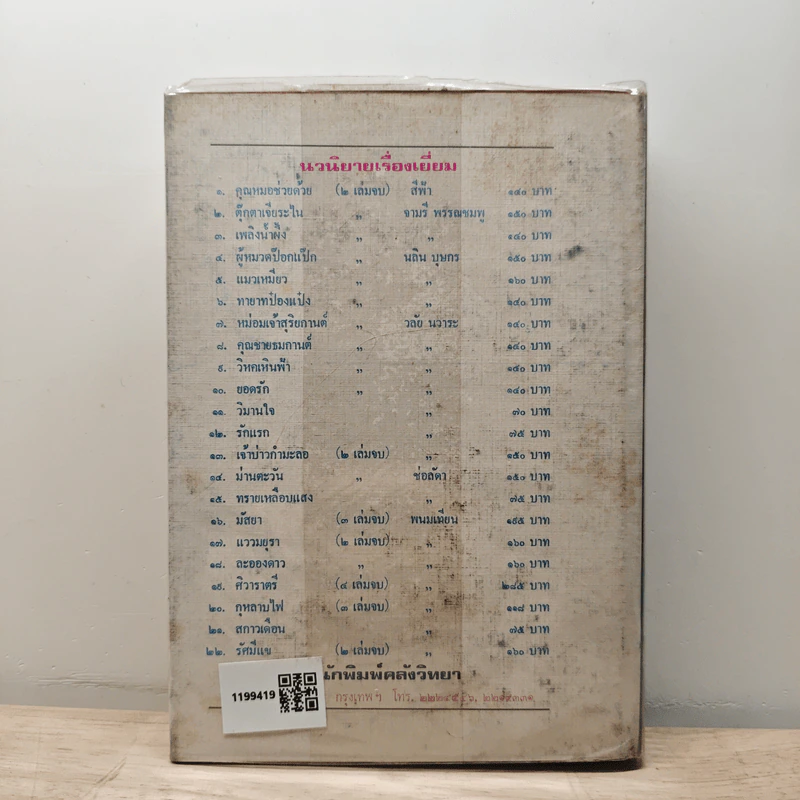 นวนิยายเรื่องเยี่ยม
๑. คุณหมอช่วยด้วย (๒ เล่มจบ) สีฟ้า ๑๔๐ บาท
๒. ตุ๊กตาเจียระไน ,, จามรี พรรณชมพู ๑๕๐ บาท
๓. เพลิงน้ำผึ้ง ,, ,, ๑๔๐ บาท
๔. ผู้หมวดป๊อกแป๊ก ,, นลิน บุษกร ๑๕๐ บาท
๕. แมวเหมียว ,, ,, ๑๖๐ บาท
๖. ทายาทป๋องแป๋ง ,, ,, ๑๔๐ บาท
๗. หม่อมเจ้าสุริยกานต์ ,, วลัย นวาระ ๑๔๐ บาท
๘. คุณชายธมกานต์ ,, ,, ๑๔๐ บาท
๙. วิหคเหินฟ้า ,, ,, ๑๔๐ บาท
๑๐. ยอดรัก ,, ,, ๑๔๐ บาท
๑๑. วิมานใจ ,, ๗๐ บาท
๑๒. รักแรก ,, ๗๕ บาท
๑๓. เจ้าบ่าวกำมะลอ (๒ เล่มจบ) ,, ๑๕๐ บาท
๑๔. ม่านตะวัน ,, ช่อลัดา ๑๕๐ บาท
๑๕. ทรายเหลือบแสง ,, ๗๕ บาท
๑๖. มัสยา (๓ เล่มจบ) พนมเทียน ๑๙๕ บาท
๑๗. แววมยุรา (๒ เล่มจบ) ,, ๑๖๐ บาท
๑๘. ละอองดาว ,, ,, ๑๖๐ บาท
๑๙. ศิวาราตรี (๔ เล่มจบ) ,, ๒๘๕ บาท
๒๐. กุหลาบไฟ (๓ เล่มจบ) ,, ๑๑๘ บาท
๒๑. สกาวเดือน ,, ๗๕ บาท
๒๒. รัศมีแข (๒ เล่มจบ) ,, ๑๖๐ บาท
นักพิมพ์คลังวิทยา
กรุงเทพฯ โทร.
1199419